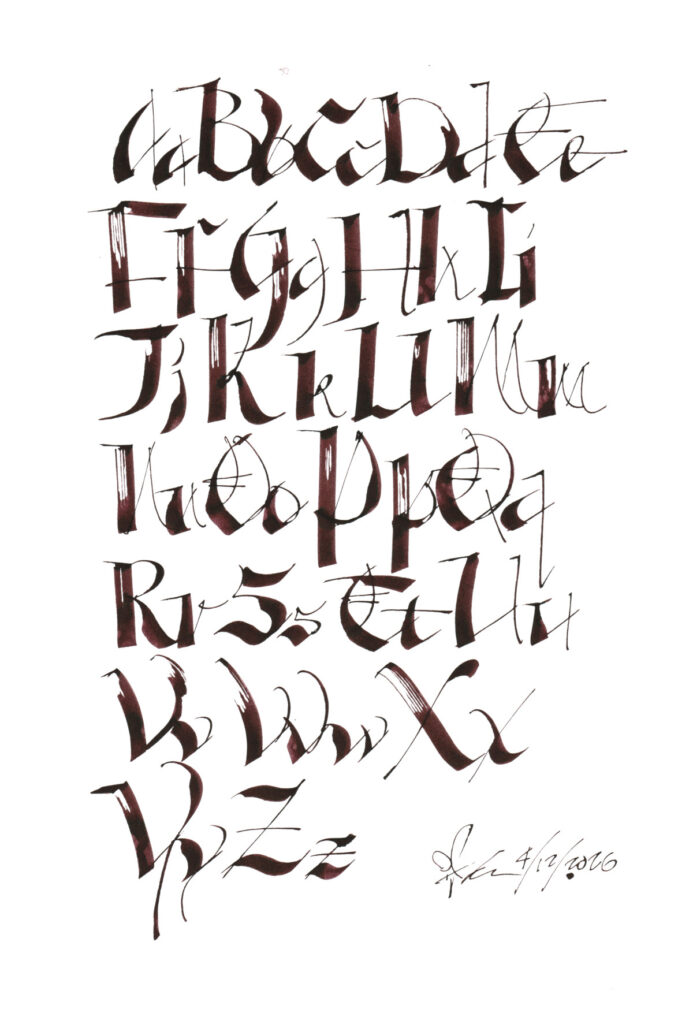 AaBbCcDdEe
FfGgHhIi
JjKkLlMm
NnOoPpQq
RrSsTtUu
VvWwXx
YyZz
4/12/2020